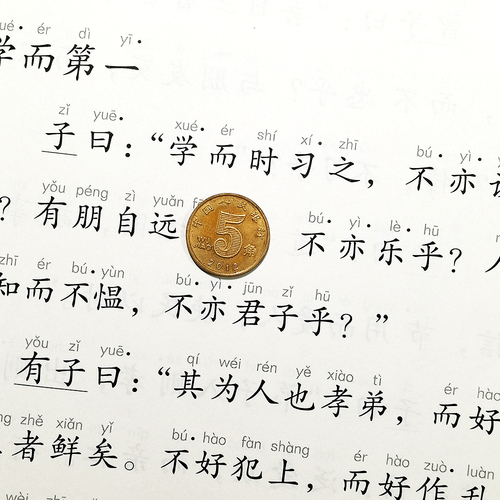 ér dì yī•
学而第一
zǐ yuē• xué• ér shí xí• zhī bú• yì•
子曰：“学而时习之，不亦
yǒu péng zì yuǎn bú• yì• lè• hū
？有朋自远 不亦乐乎？人
中国人民银行
5
角
2012
zhī ér bú•yùn bú• yì• jūn zǐ hū
知而不愠，不亦君子乎？”
yǒu zǐ yuē• qí wéi rén yě xiào tì ér hào
有子曰：“其为人也孝弟，而好
zhě xiǎn yǐ bú•hào fàn shàng ér hào zuò•luàn
者鲜矣。不好犯上，而好作乱